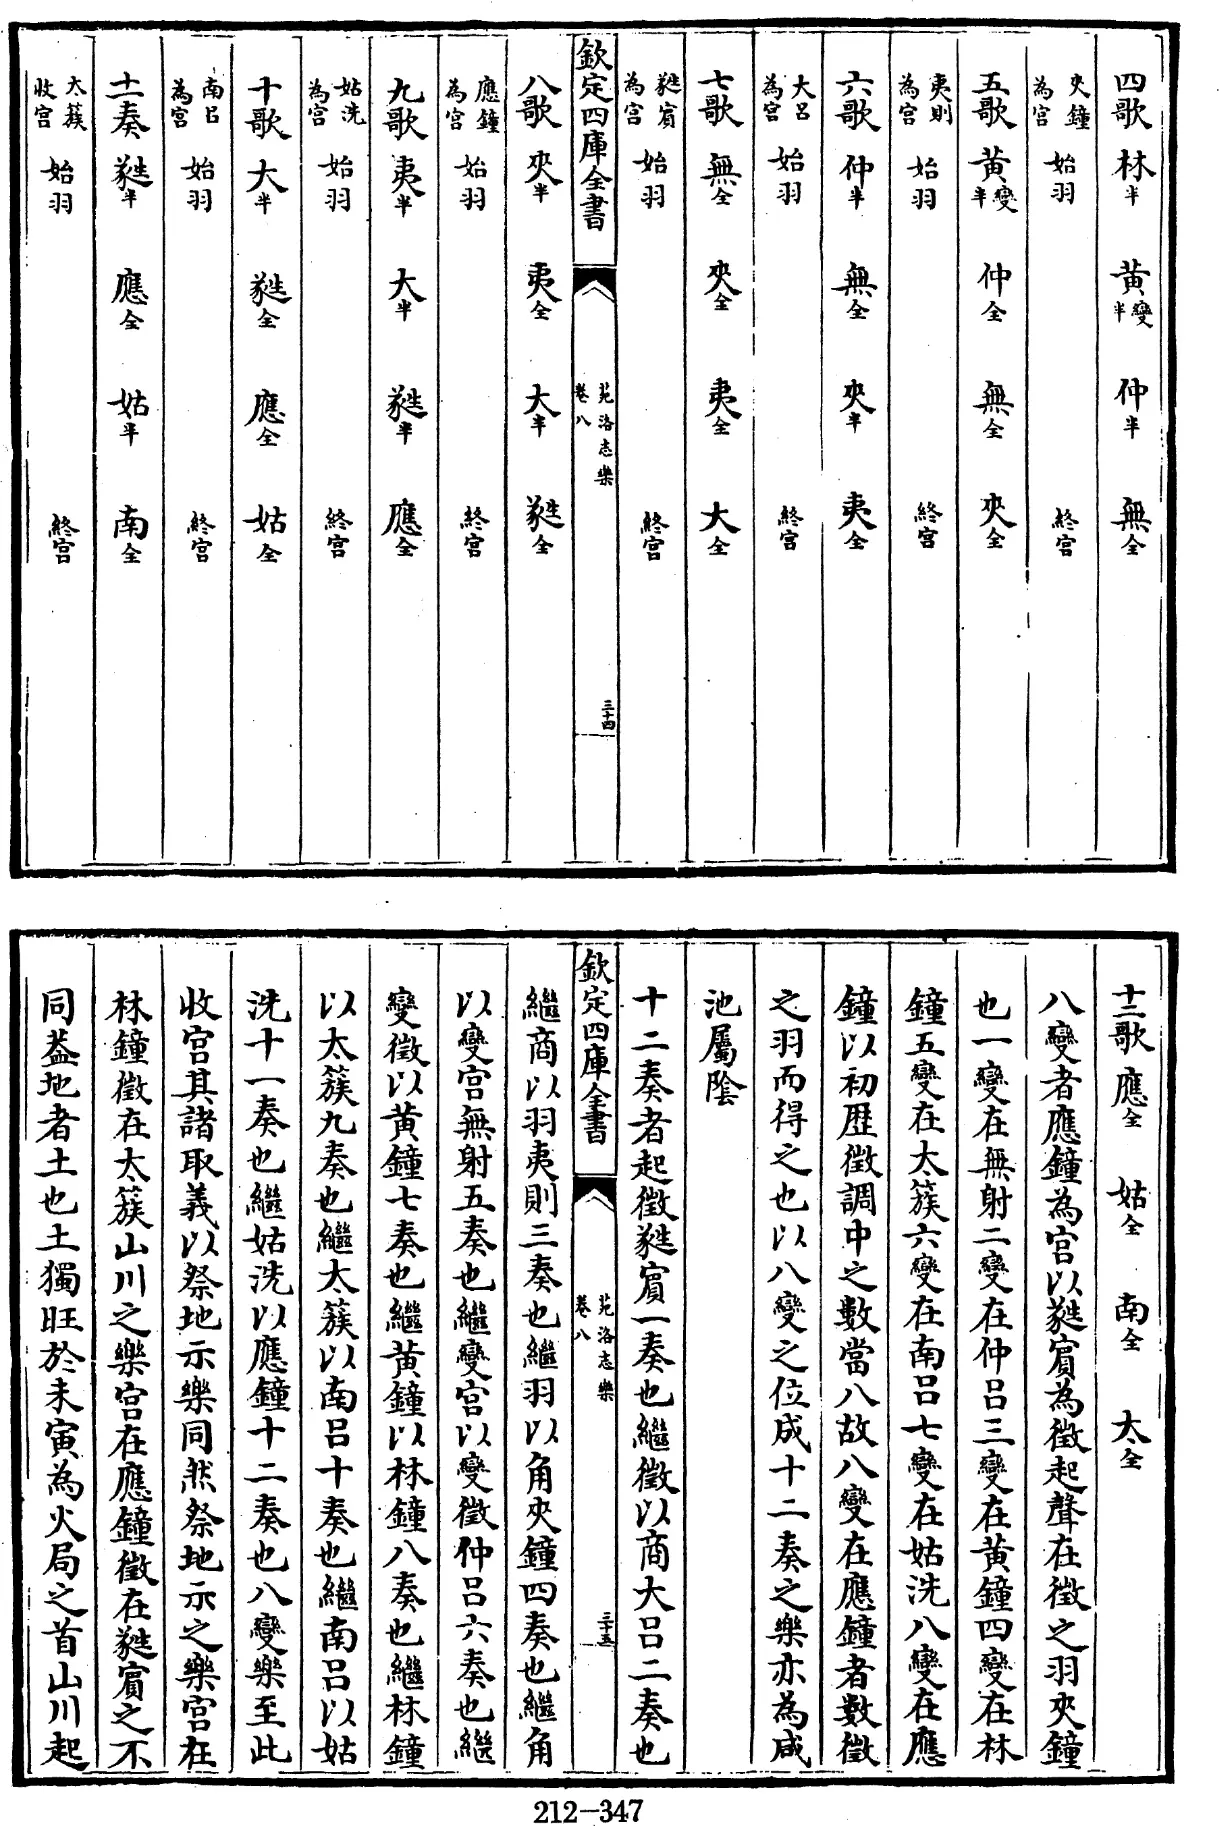 四歌 林半 黃變半 仲半 無全
夾鐘為宮 始羽 終宮
五歌 黃變半 仲全 無全 夾全
夷則為宮 始羽 終宮
六歌 仲半 無全 夾半 夷全
大呂為宮 始羽 終宮
七歌 無全 夾全 夷全 大全
蕤賓為宮 始羽 終宮
欽定四庫全書 苑洛志樂 卷八 三十四
八歌 夾半 夷全 大半 蕤全
應鐘為宮 始羽 終宮
九歌 夷半 大半 蕤半 應全
姑洗為宮 始羽 終宮
十歌 大半 蕤全 應全 姑全
南呂為宮 始羽 終宮
十一奏 蕤半 應全 姑半 南全
太簇收宮 始羽 終宮
十二歌 應全 姑全 南全 太全
八變者應鐘為宮以蕤賓為徵起聲在徵之羽夾鐘
也一變在無射二變在仲呂三變在黃鐘四變在林
鐘五變在太簇六變在南呂七變在姑洗八變在應
鐘以初歷徵調中之數當八故八變在應鐘者數徵
之羽而得之也以八變之位成十二奏之樂亦為咸
池屬陰
十二奏者起徵蕤賓一奏也繼徵以商大呂二奏也
欽定四庫全書 苑洛志樂 卷八 三十五
繼商以羽夷則三奏也繼羽以角夾鐘四奏也繼角
以變宮無射五奏也繼變宮以變徵仲呂六奏也繼
變徵以黃鐘七奏也繼黃鐘以林鐘八奏也繼林鐘
以太簇九奏也繼太簇以南呂十奏也繼南呂以姑
洗十一奏也繼姑洗以應鐘十二奏也八變樂至此
收宮其諸取義以祭地示樂同然祭地示之樂宮在
林鐘徵在太簇山川之樂宮在應鐘徵在蕤賓之不
同葢地者土也土獨旺於未寅為火局之首山川起
212-347